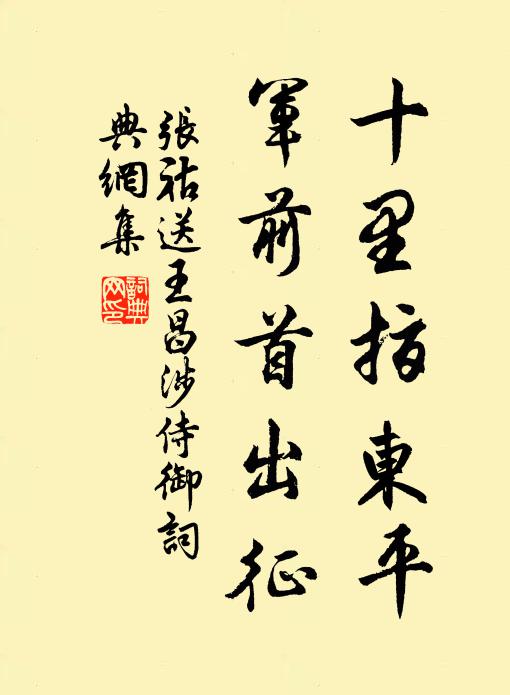 十里指東平
軍前首出征
張祜送王昌涉侍御詞
典網集
詞典
网印